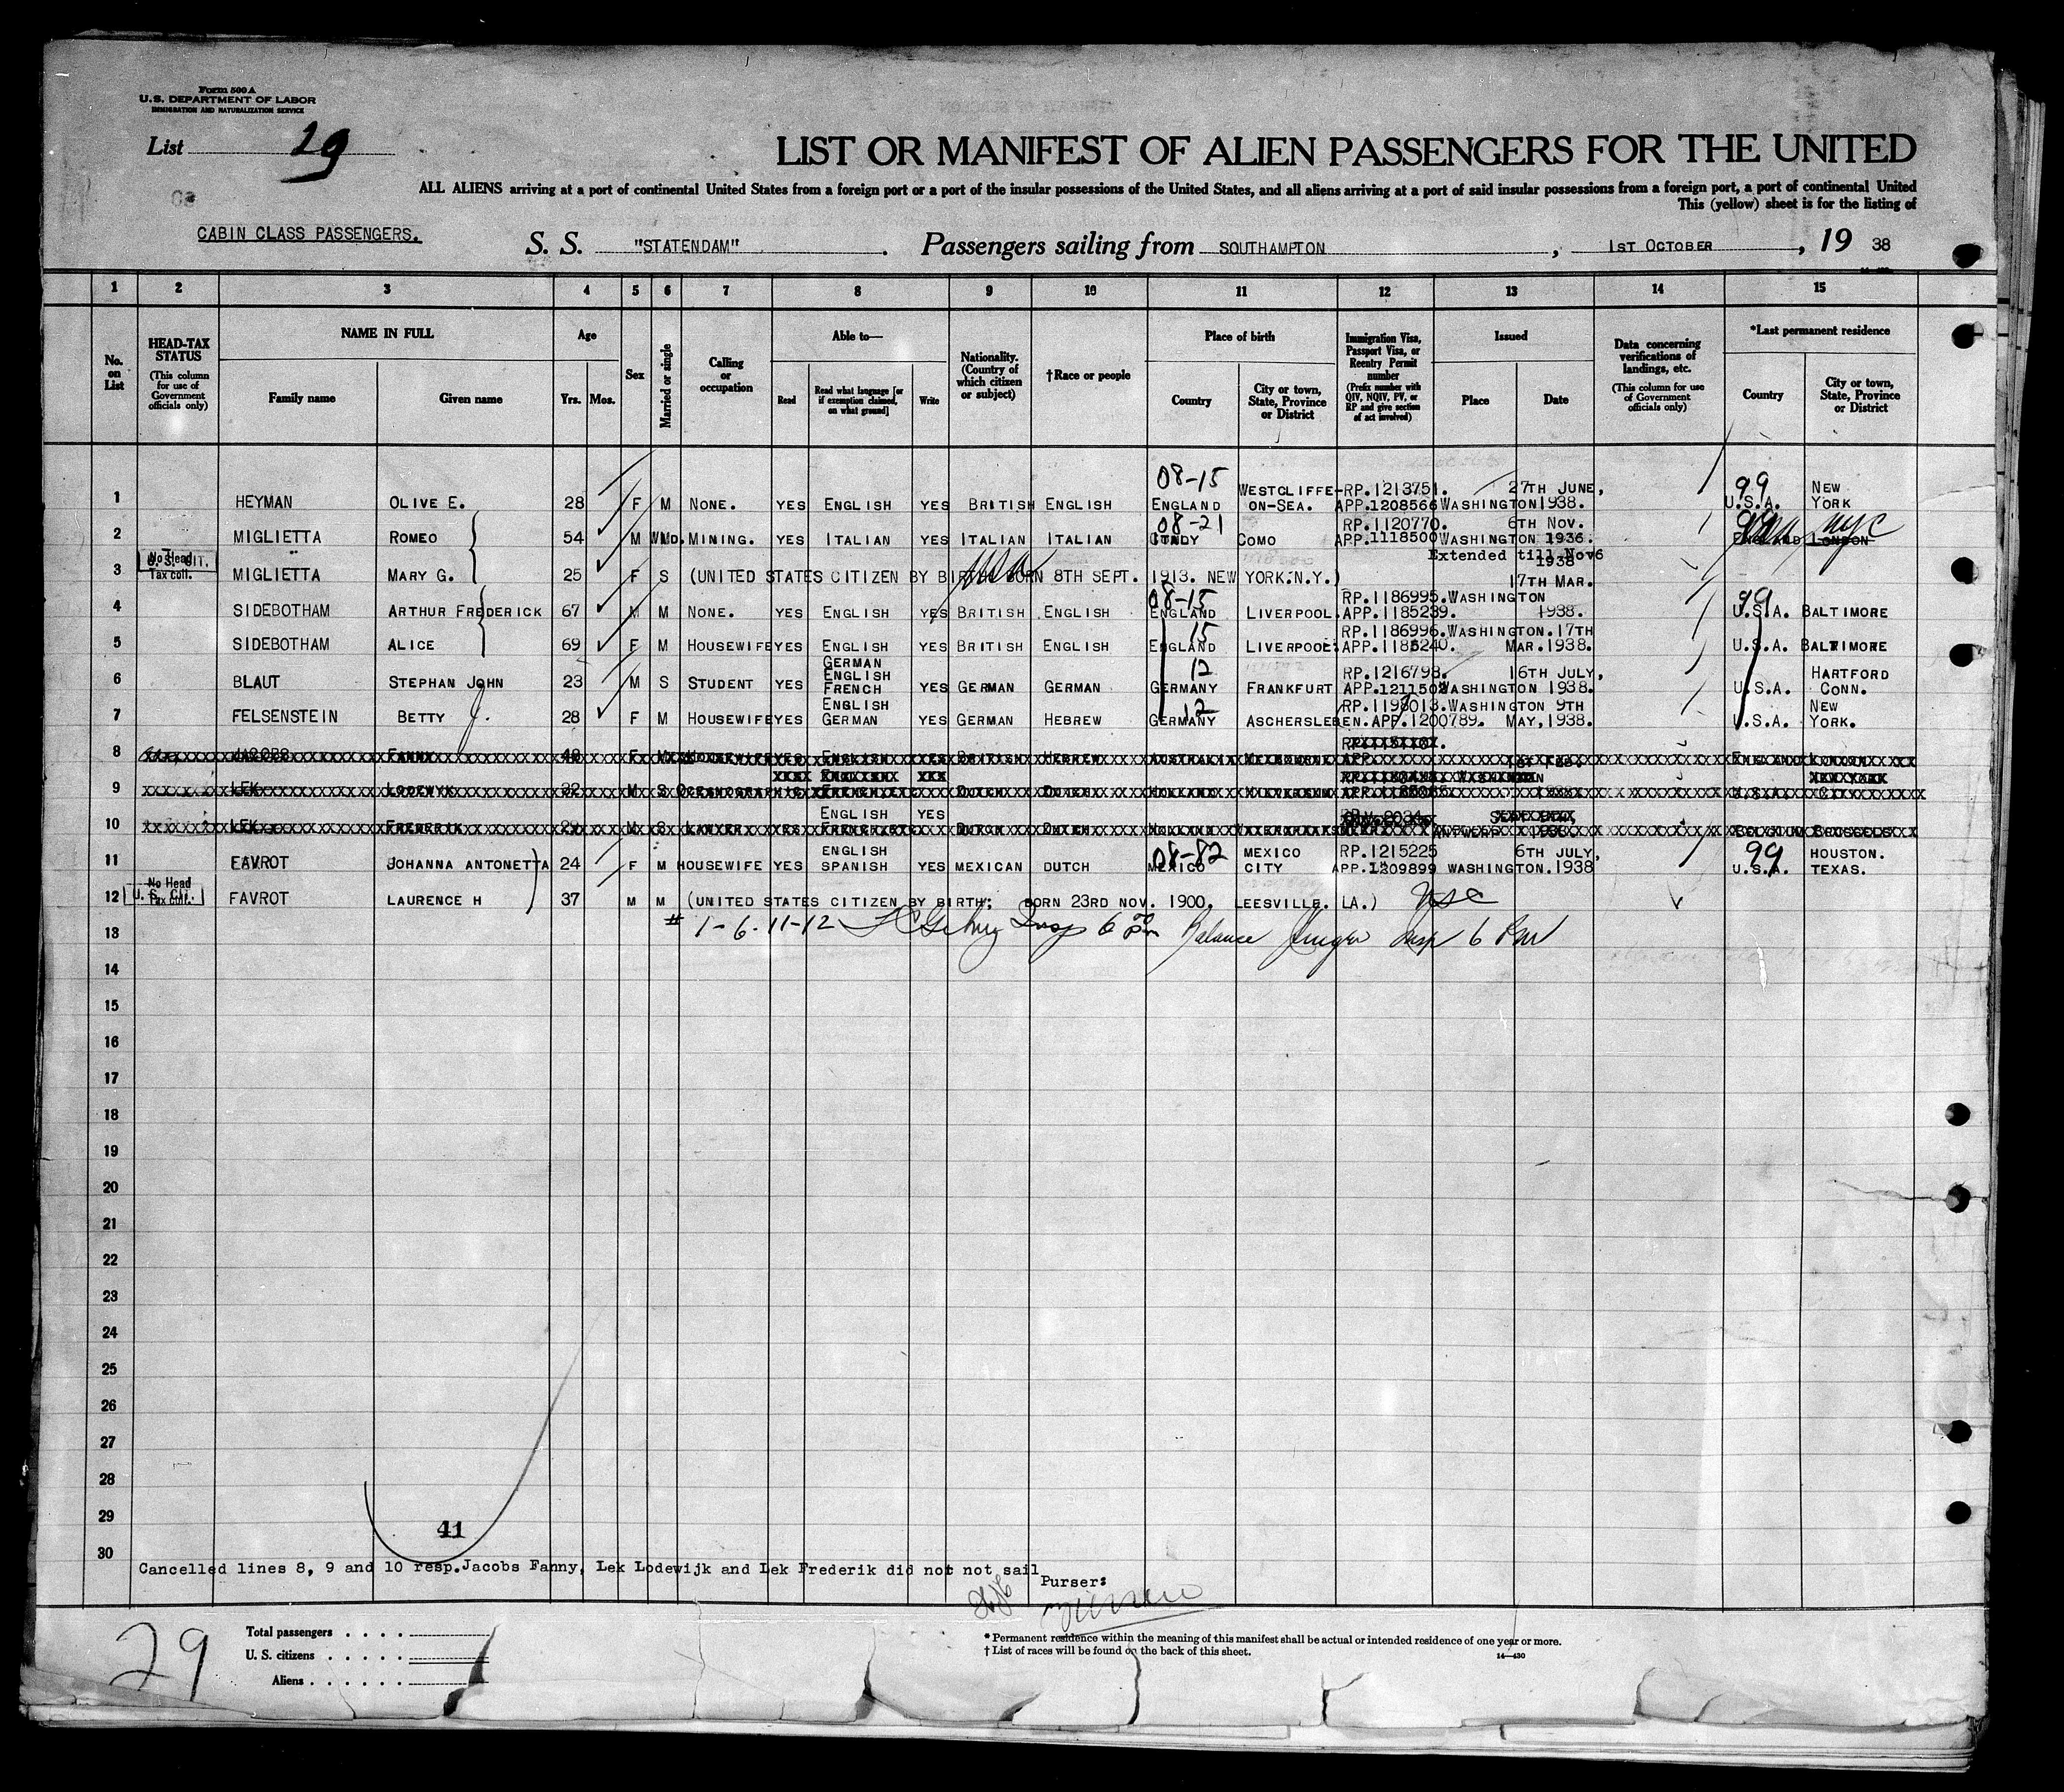 Form 500 A
U. S. DEPARTMENT OF LABOR
IMMIGRATION AND NATURALIZATION SERVICE
List 29
LIST OR MANIFEST OF ALIEN PASSENGERS FOR THE UNITED
ALL ALIENS arriving at a port of continental United States from a foreign port or a port of the insular possessions of the United States, and all aliens arriving at a port of said insular possessions from a foreign port, a port of continental United
This (yellow) sheet is for the listing of
CABIN CLASS PASSENGERS.
S. S. "STATENDAM". Passengers sailing from SOUTHAMPTON, 1ST OCTOBER, 19 38
1 2 3 4 5 6 7 8 9 10 11 12 13 14 15
No. on List
HEAD-TAX STATUS (This column for use of Government officials only)
NAME IN FULL
Family name Given name
Age
Yrs. Mos.
Sex
Married or single
Calling or occupation
Able to—
Read Read what language [or if exemption claimed, on what ground] Write
Nationality. (Country of which citizen or subject)
†Race or people
Place of birth
Country City or town, State, Province or District
Immigration Visa, Passport Visa, or Reentry Permit number (Prefix number with QIV, NQIV, PV, or RP and give section of act involved)
Issued
Place Date
Data concerning verifications of landings, etc. (This column for use of Government officials only)
*Last permanent residence
Country City or town, State, Province or District
08-15 WESTCLIFFE- RP.1213751. 27TH JUNE, 99 NEW
1 HEYMAN OLIVE E. 28 F M NONE. YES ENGLISH YES BRITISH ENGLISH ENGLAND ON-SEA. APP.1208566 WASHINGTON 1938. U.S.A. YORK
08-21 RP.1120770. 6TH NOV. NYC
2 MIGLIETTA ROMEO 54 M WD. MINING. YES ITALIAN YES ITALIAN ITALIAN COMO APP.1118500 WASHINGTON 1936. LONDON
No Head Tax coll. U.S. CIT. Extended till Nov 6 1938
3 MIGLIETTA MARY G. 25 F S (UNITED STATES CITIZEN BY BIRTH BORN 8TH SEPT. 1913. NEW YORK.N.Y.) USA
17TH MAR.
08-15 RP.1186995. WASHINGTON 99
4 SIDEBOTHAM ARTHUR FREDERICK 67 M M NONE. YES ENGLISH YES BRITISH ENGLISH ENGLAND LIVERPOOL. APP.1185239. 1938. U.S.A. BALTIMORE
15 RP.1186996. WASHINGTON. 17TH
5 SIDEBOTHAM ALICE 69 F M HOUSEWIFE YES ENGLISH YES BRITISH ENGLISH ENGLAND LIVERPOOL. APP.1185240. MAR.1938. U.S.A. BALTIMORE
GERMAN
ENGLISH 12 RP.1216798. 16TH JULY, HARTFORD
6 BLAUT STEPHAN JOHN 23 M S STUDENT YES FRENCH YES GERMAN GERMAN GERMANY FRANKFURT APP.1211502 WASHINGTON 1938. U.S.A. CONN.
ENGLISH 12 RP.1198013. WASHINGTON 9TH NEW
7 FELSENSTEIN BETTY J. 28 F M HOUSEWIFE YES GERMAN YES GERMAN HEBREW GERMANY ASCHERSLEBEN. APP.1200789. MAY,1938. U.S.A. YORK.
8 JACOBS FANNY 48 F M HOUSEWIFE YES ENGLISH YES BRITISH HEBREW AUSTRALIA MELBOURNE APP. ENGLAND LONDON
9 LEK LODEWYK 32 M S YES DUTCH DUTCH HOLLAND 1938. U.S.A.
ENGLISH YES
10 LEK FREDERIK 29 M S LAWYER YES DUTCH DUTCH HOLLAND ANTWERP 1938. BELGIUM BRUSSELS
ENGLISH 08-82 MEXICO RP.1215225 6TH JULY, 99 HOUSTON.
11 FAVROT JOHANNA ANTONETTA 24 F M HOUSEWIFE YES SPANISH YES MEXICAN DUTCH MEXICO CITY APP.1209899 WASHINGTON.1938 U.S.A. TEXAS.
No Head Tax coll. U.S. Cit.
12 FAVROT LAURENCE H 37 M M (UNITED STATES CITIZEN BY BIRTH; BORN 23RD NOV. 1900. LEESVILLE. LA.) USC
# 1-6. 11-12 Insp 6 pm Balance Insp 6 PM
13
14
15
16
17
18
19
20
21
22
23
24
25
26
27
28
29
41
30
Cancelled lines 8, 9 and 10 resp.Jacobs Fanny, Lek Lodewijk and Lek Frederik did not not sail
Purser:
29
Total passengers . . . .
U. S. citizens . . . . .
Aliens . . . . . .
* Permanent residence within the meaning of this manifest shall be actual or intended residence of one year or more.
† List of races will be found on the back of this sheet.
14—430